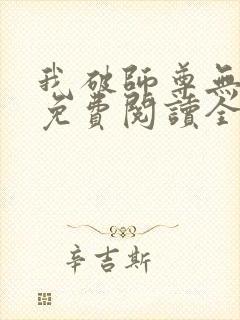 我破師尊無
免費閱讀全
辛吉斯